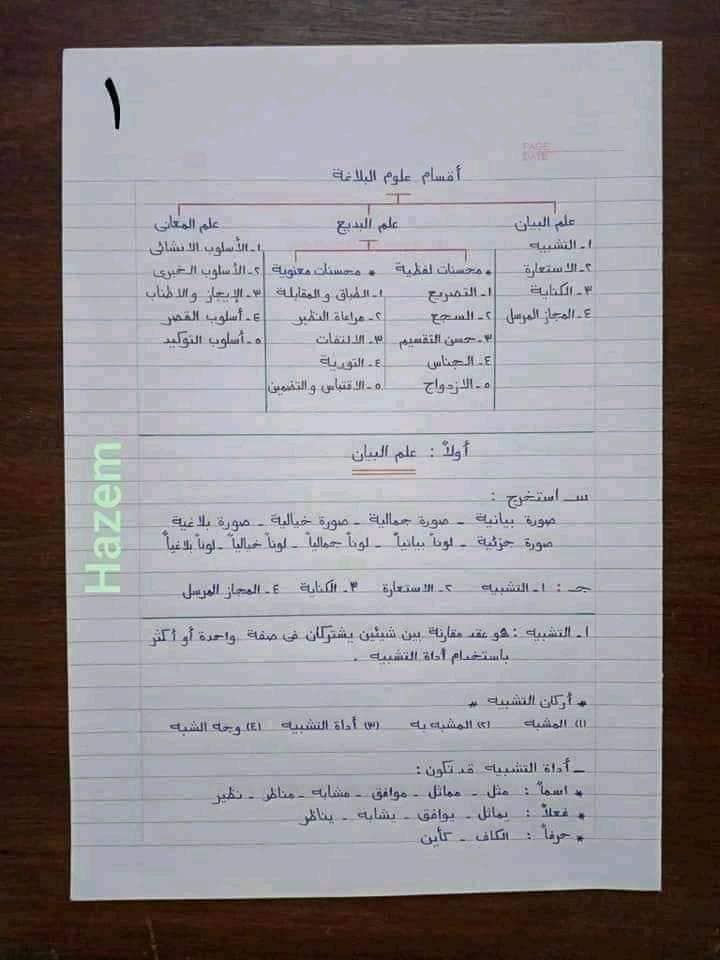 ١
PAGE
DATE
أقسام علوم البلاغة
علم البيان علم البديع علم المعانى
١ـ التشبيه
٢ـ الاستعارة
٣ـ الكناية
٤ـ المجاز المرسل
* محسنات لفظية
١ـ التصريع
٢ـ السجع
٣ـ حسن التقسيم
٤ـ الجناس
٥ـ الازدواج
* محسنات معنوية
١ـ الطباق و المقابلة
٢ـ مراعاة النظير
٣ـ الالتفات
٤ـ التورية
٥ـ الاقتباس و التضمين
١ـ الأسلوب الانشائى
٢ـ الأسلوب الخبرى
٣ـ الإيجاز و الاطناب
٤ـ أسلوب القصر
٥ـ أسلوب التوكيد
أولاً : علم البيان
سـ استخرج :
صورة بيانية ـ صورة جمالية ـ صورة خيالية ـ صورة بلاغية
صورة جزئية ـ لوناً بيانياً ـ لوناً جمالياً ـ لوناً خيالياً ـ لوناً بلاغياً
جـ : ١ـ التشبيه ٢ـ الاستعارة ٣ـ الكناية ٤ـ المجاز المرسل
١ـ التشبيه : هو عقد مقارنة بين شيئين يشتركان فى صفة واحدة أو أكثر
باستخدام أداة التشبيه .
* أركان التشبيه *
(١) المشبه (٢) المشبه به (٣) أداة التشبيه (٤) وجه الشبه
ـ أداة التشبيه قد تكون :
* اسماً : مثل ـ مماثل ـ موافق ـ مشابه ـ مناظر ـ نظير
* فعلاً : يماثل ـ يوافق ـ يشابه ـ يناظر
* حرفاً : الكاف ـ كأين
Hazem